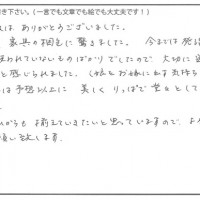 き下さい。（一言でも文章でも絵でも大丈夫です！）
はありがとうございました。
家具の相色に驚きました。今までは
使われていないものばかりでしたので大切に
と感じられました。（娘をお嫁に出す気持ち
は予想以上に美しくりっぱで堂々として
からも揃えていきたいと思っていますので、よ
願い致します。